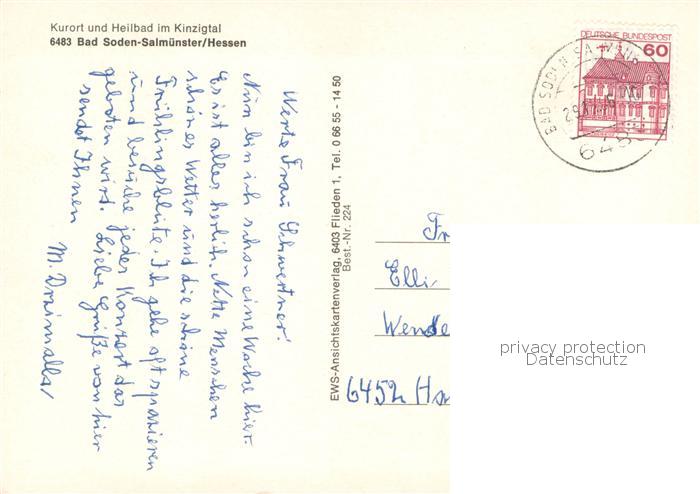 Kurort und Heilbad im Kinzigtal
6483 Bad Soden-Salmünster/Hessen
Werte Frau Schwertner!
Nun bin ich schon eine Woche hier.
Es ist alles herlich. Nette Menschen
schönes Wetter und die schöne
Frühlingsblüte. Ich gehe oft spazieren
und besuche jedes Konzert das
geboten wird. Liebe Grüße von hier
sendet Ihnen
M.
EWS-Ansichtskartenverlag, 6403 Flieden 1, Tel. 0 66 55 - 14 50
Best.-Nr. 224
DEUTSCHE BUNDESPOST
60
BAD SODEN-SALMÜN
Fr
Elli
Wende
6452 Ha
privacy protection
Datenschutz